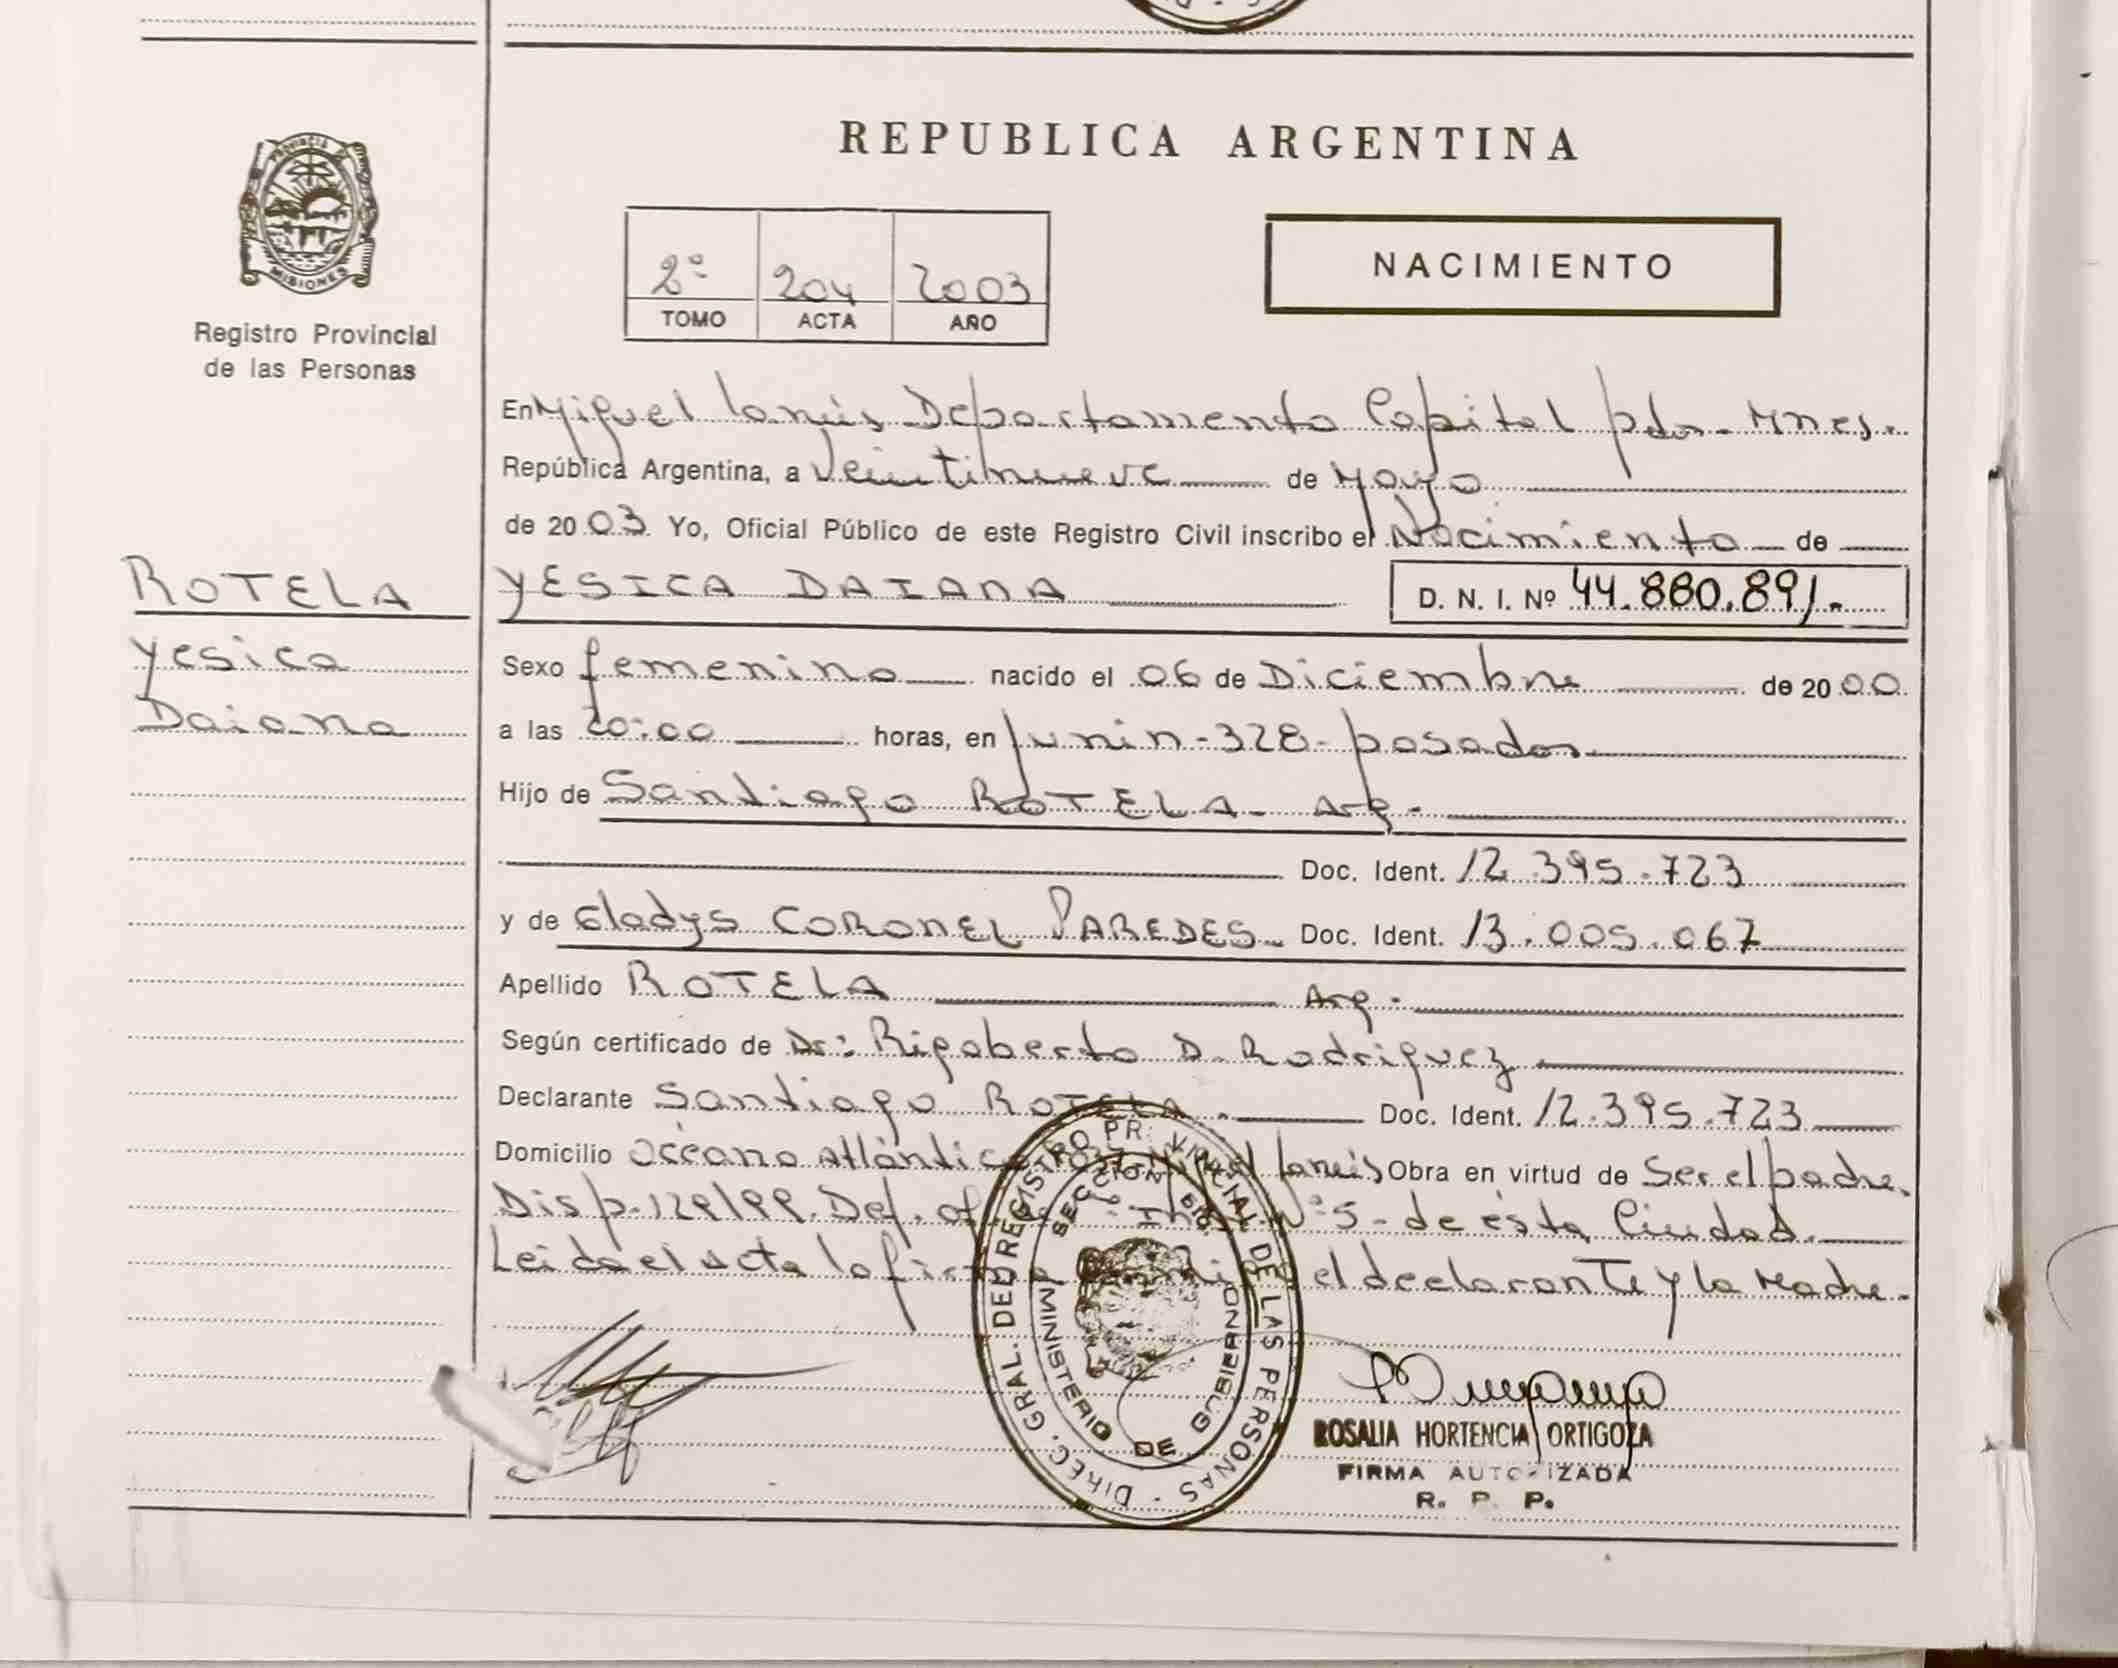 PROVINCIA DE
MISIONES
Registro Provincial
de las Personas
ROTELA
Yesica
Daiana
REPUBLICA ARGENTINA
2º 204 2003
TOMO ACTA AÑO
NACIMIENTO
En Miguel Lanús Departamento Capital pdas. Mnes.
República Argentina, a Veintinueve de Mayo
de 2003 Yo, Oficial Público de este Registro Civil inscribo el Nacimiento de
YESICA DAIANA D. N. I. Nº 44.880.891.-
Sexo femenino nacido el 06 de Diciembre de 2000
a las 20:00 horas, en Junin-328-posadas
Hijo de Santiago ROTELA- Arg.
Doc. Ident. 12.395.723
y de Gladys CORONEL PAREDES Doc. Ident. 13.005.067
Apellido ROTELA Arg.
Según certificado de Dr: Rigoberto D. Rodriguez
Declarante Santiago ROTELA.- Doc. Ident. 12.395.723
Domicilio Océano Atlántico Lanús Obra en virtud de Ser el padre.
Disp. 129/99. Def. Of. Nº5-de ésta Ciudad.
Leida el Acta la firman el declarante y la Madre.
DIREC. GRAL. DEL REGISTRO PROVINCIAL DE LAS PERSONAS
MINISTERIO DE GOBIERNO
ROSALIA HORTENCIA ORTIGOZA
FIRMA AUTORIZADA
R. P. P.